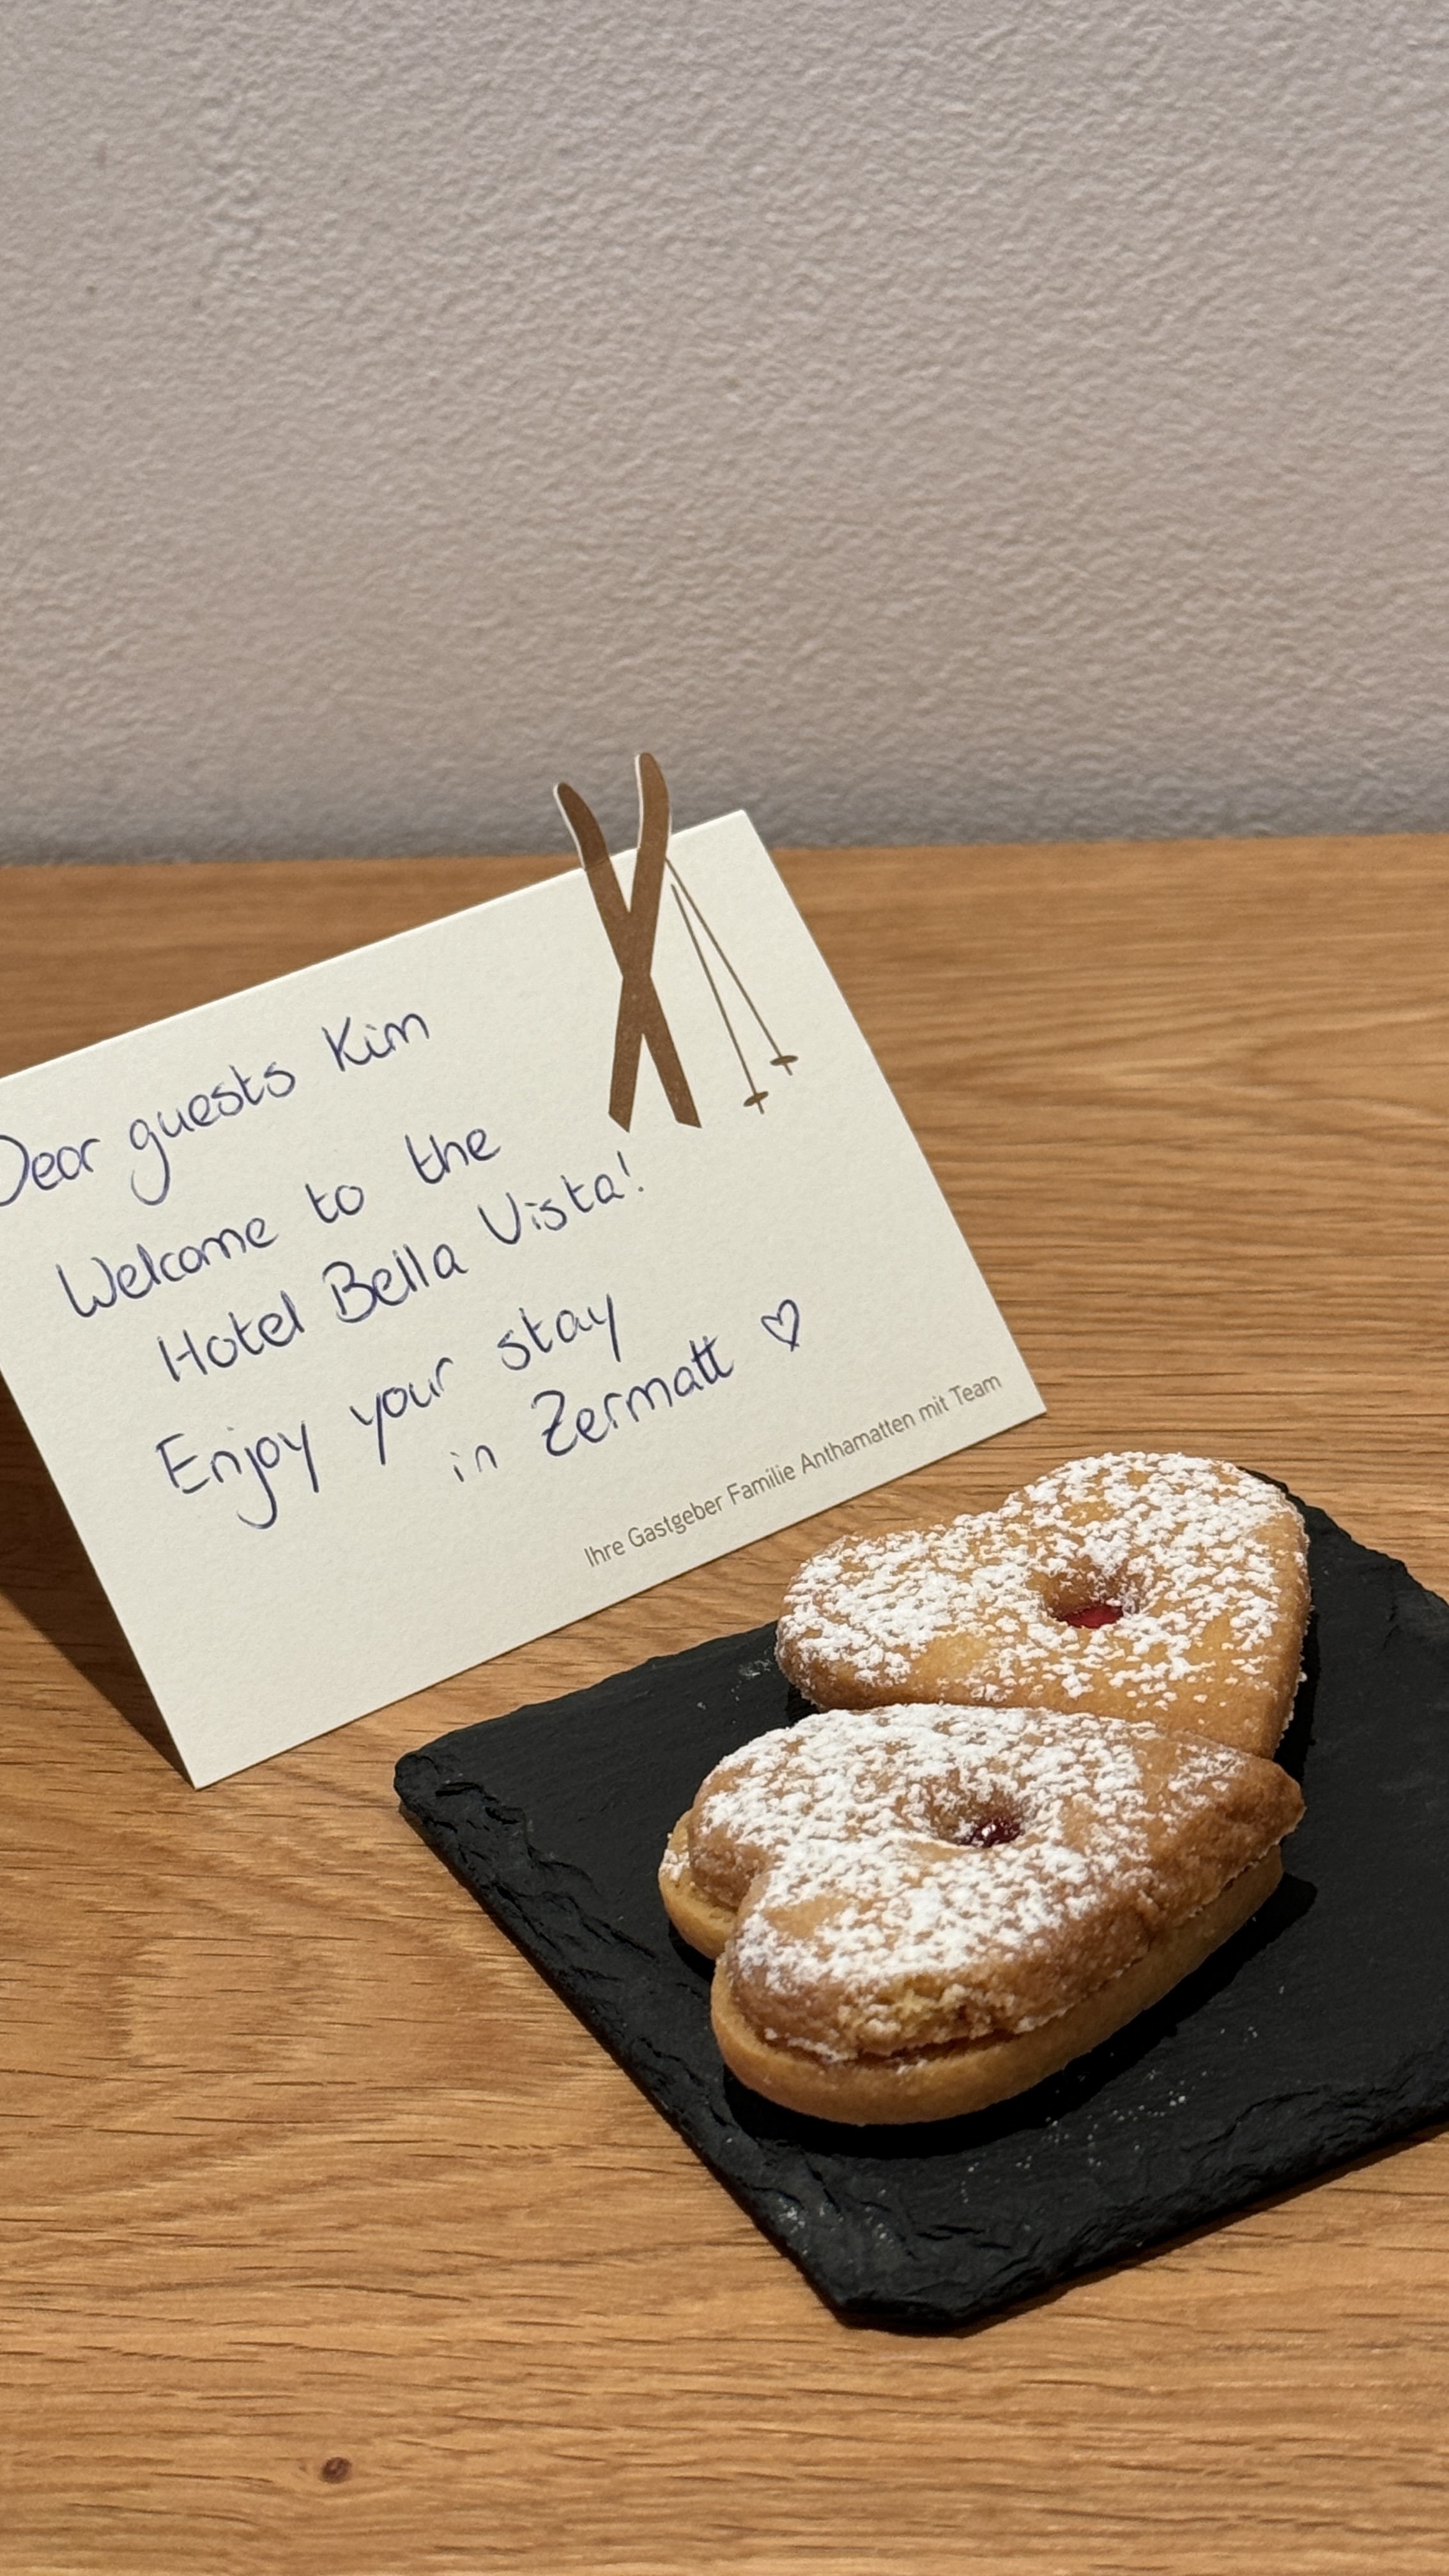 Dear guests Kim
Welcome to the
Hotel Bella Vista!
Enjoy your stay
in Zermatt ♡
Ihre Gastgeber Familie Anthamatten mit Team